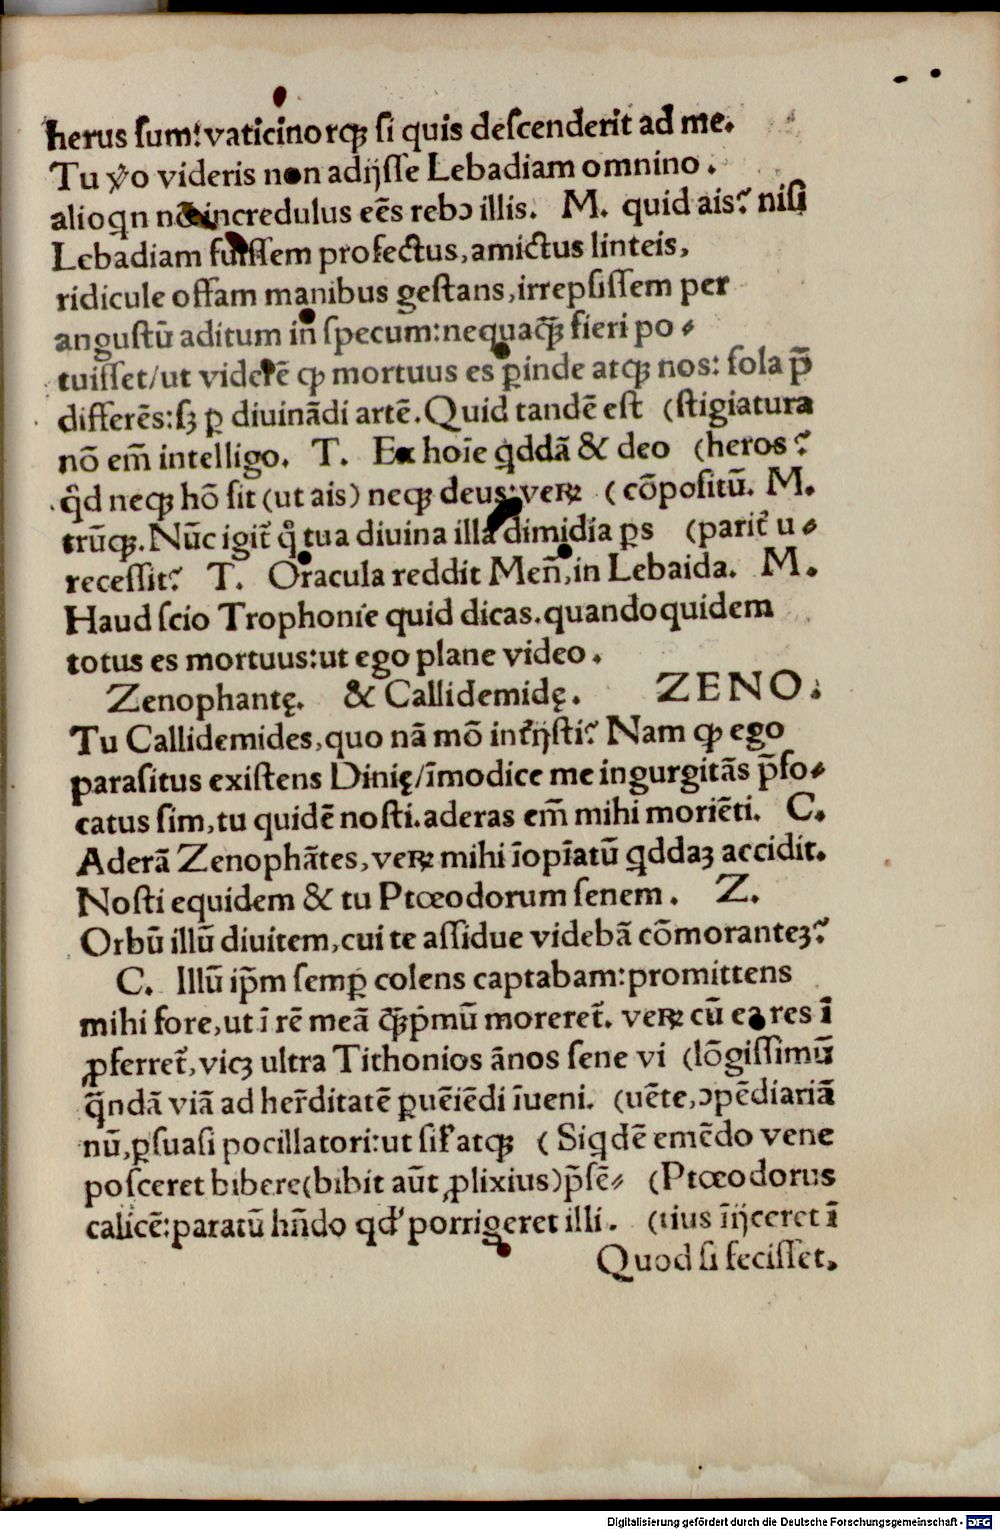 herus sum: vaticinorqꝫ si quis descenderit ad me.
Tu ꝟo videris non adijsse Lebadiam omnino.
alioqn nō incredulus eēs rebꝯ illis. M. quid ais? nisi
Lebadiam fuissem profectus, amictus linteis,
ridicule offam manibus gestans, irrepsissem per
angustū aditum in specum: nequaq̄ꝫ fieri po⸗
tuisset/ut viderē ꝙ mortuus es ꝑinde atqꝫ nos: sola p̄
differēs: sꝫ ꝑ diuinādi artē. Quid tandē est (stigiatura
nō em̄ intelligo. T. Ex hoīe qddā & deo (heros?
qd neqꝫ hō sit (ut ais) neqꝫ deus: veꝝ (cōpositū. M.
trūqꝫ. Nūc igit̄ q̊ tua diuina illa dimidia ꝑs (parit̄ u⸗
recessit? T. Oracula reddit Men̄, in Lebaida. M.
Haud scio Trophonie quid dicas. quandoquidem
totus es mortuus: ut ego plane video.
Zenophantę. & Callidemidę. ZENO.
Tu Callidemides, quo nā mō int̄ijsti? Nam ꝙ ego
parasitus existens Dinię/īmodice me ingurgitās p̄fo⸗
catus sim, tu quidē nosti. aderas em̄ mihi moriēti. C.
Aderā Zenophātes, veꝝ mihi īopīatū qddaꝫ accidit.
Nosti equidem & tu Ptœodorum senem. Z.
Orbū illū diuitem, cui te assidue videbā cōmoranteꝫ?
C. Illū ip̄m semꝑ colens captabam: promittens
mihi fore, ut ī rē meā q̄ꝫpmū moreret̄. veꝝ cū ea res ī
ꝓferret̄, vicꝫ ultra Tithonios ānos sene vi (lōgissimū
q̄ndā viā ad her̄ditatē ꝑuēiēdi īueni. (uēte, ꝯpēdiariā
nū, ꝑsuasi pocillatori: ut sil̄ atqꝫ (Siqdē emēdo vene
posceret bibere (bibit aūt ꝓlixius) p̄sē⸗ (Ptœodorus
calicē: paratū hn̄do qd' porrigeret illi. (tius īijceret ī
Quod si fecisset.
Digitalisierung gefördert durch die Deutsche Forschungsgemeinschaft - DFG